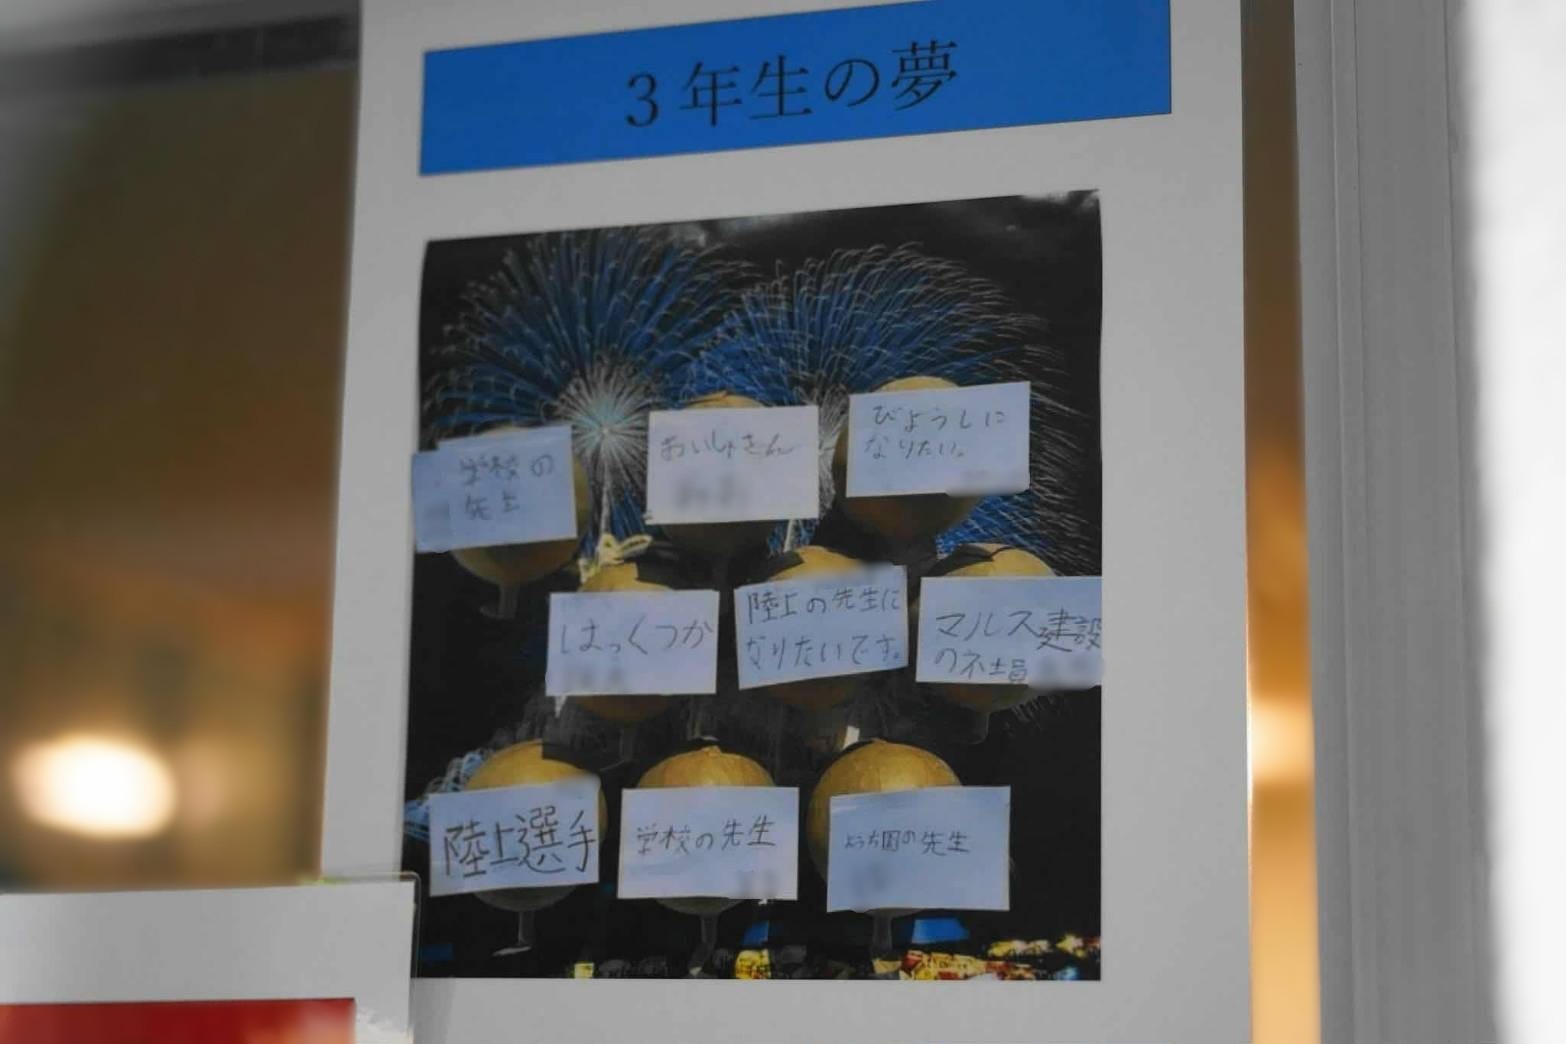 3年生の夢
学校の
先生
おいしゃさん
びようしに
なりたい。
はっくつか
陸上の先生に
なりたいです。
マルス建設
の社員
陸上選手
学校の先生
ようち園の先生